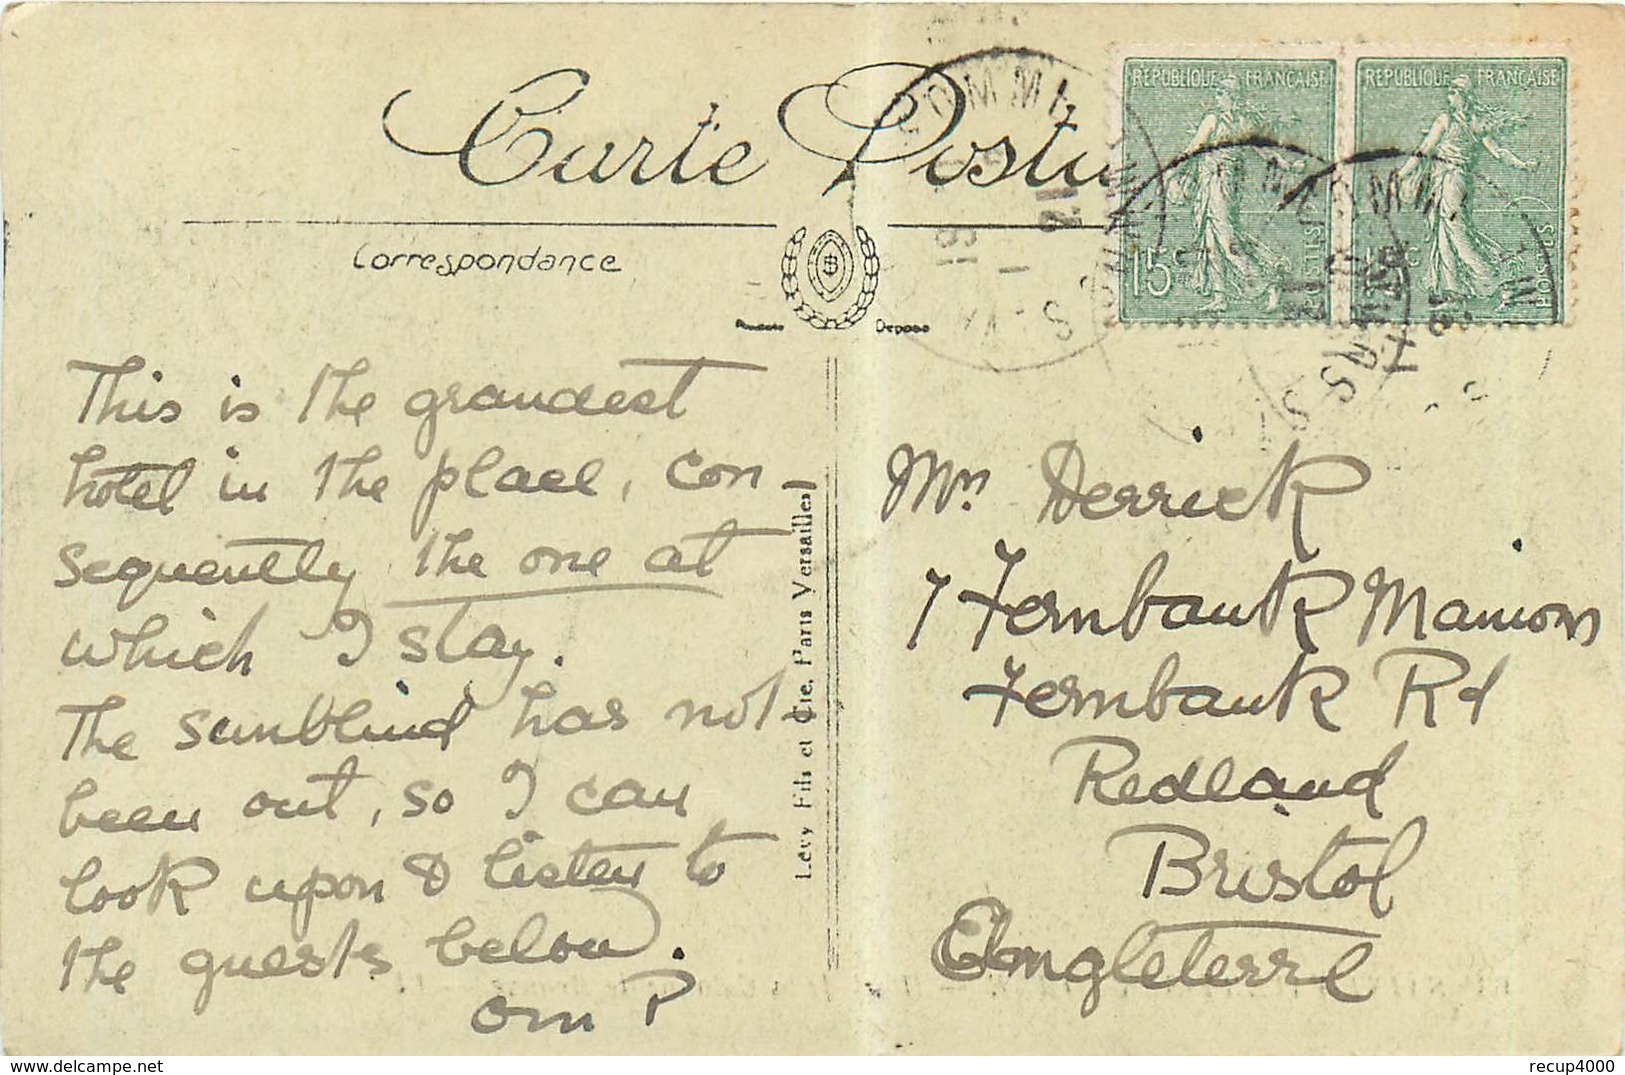 Carte Posta
Correspondance
REPUBLIQUE FRANÇAISE
REPUBLIQUE FRANÇAISE
15c
This is the grandest
hotel in the place, con -
sequently the one at
which I stay.
The sunblind has not
been out, so I can
look upon & listen to
the guests below.
Levy Fils et Cie, Paris Versailles
Derrick
7 Fernbank Mansions
Fernbank Rd
Redland
Bristol
Engleterre
recup4000
https://www.delcampe.net